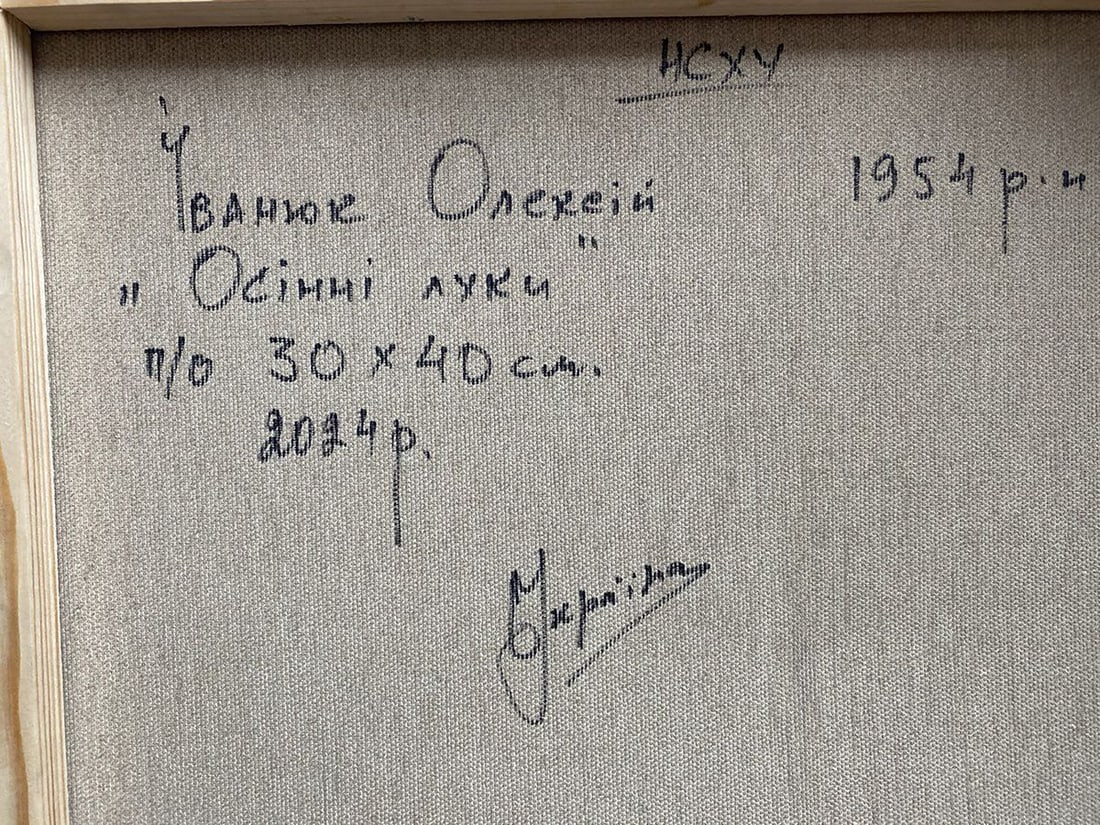 НСХУ
Іванюк Олексій 1954 р.н
„ Осінні луки "
п/о 30 х 40 см.
2024р.
Україна